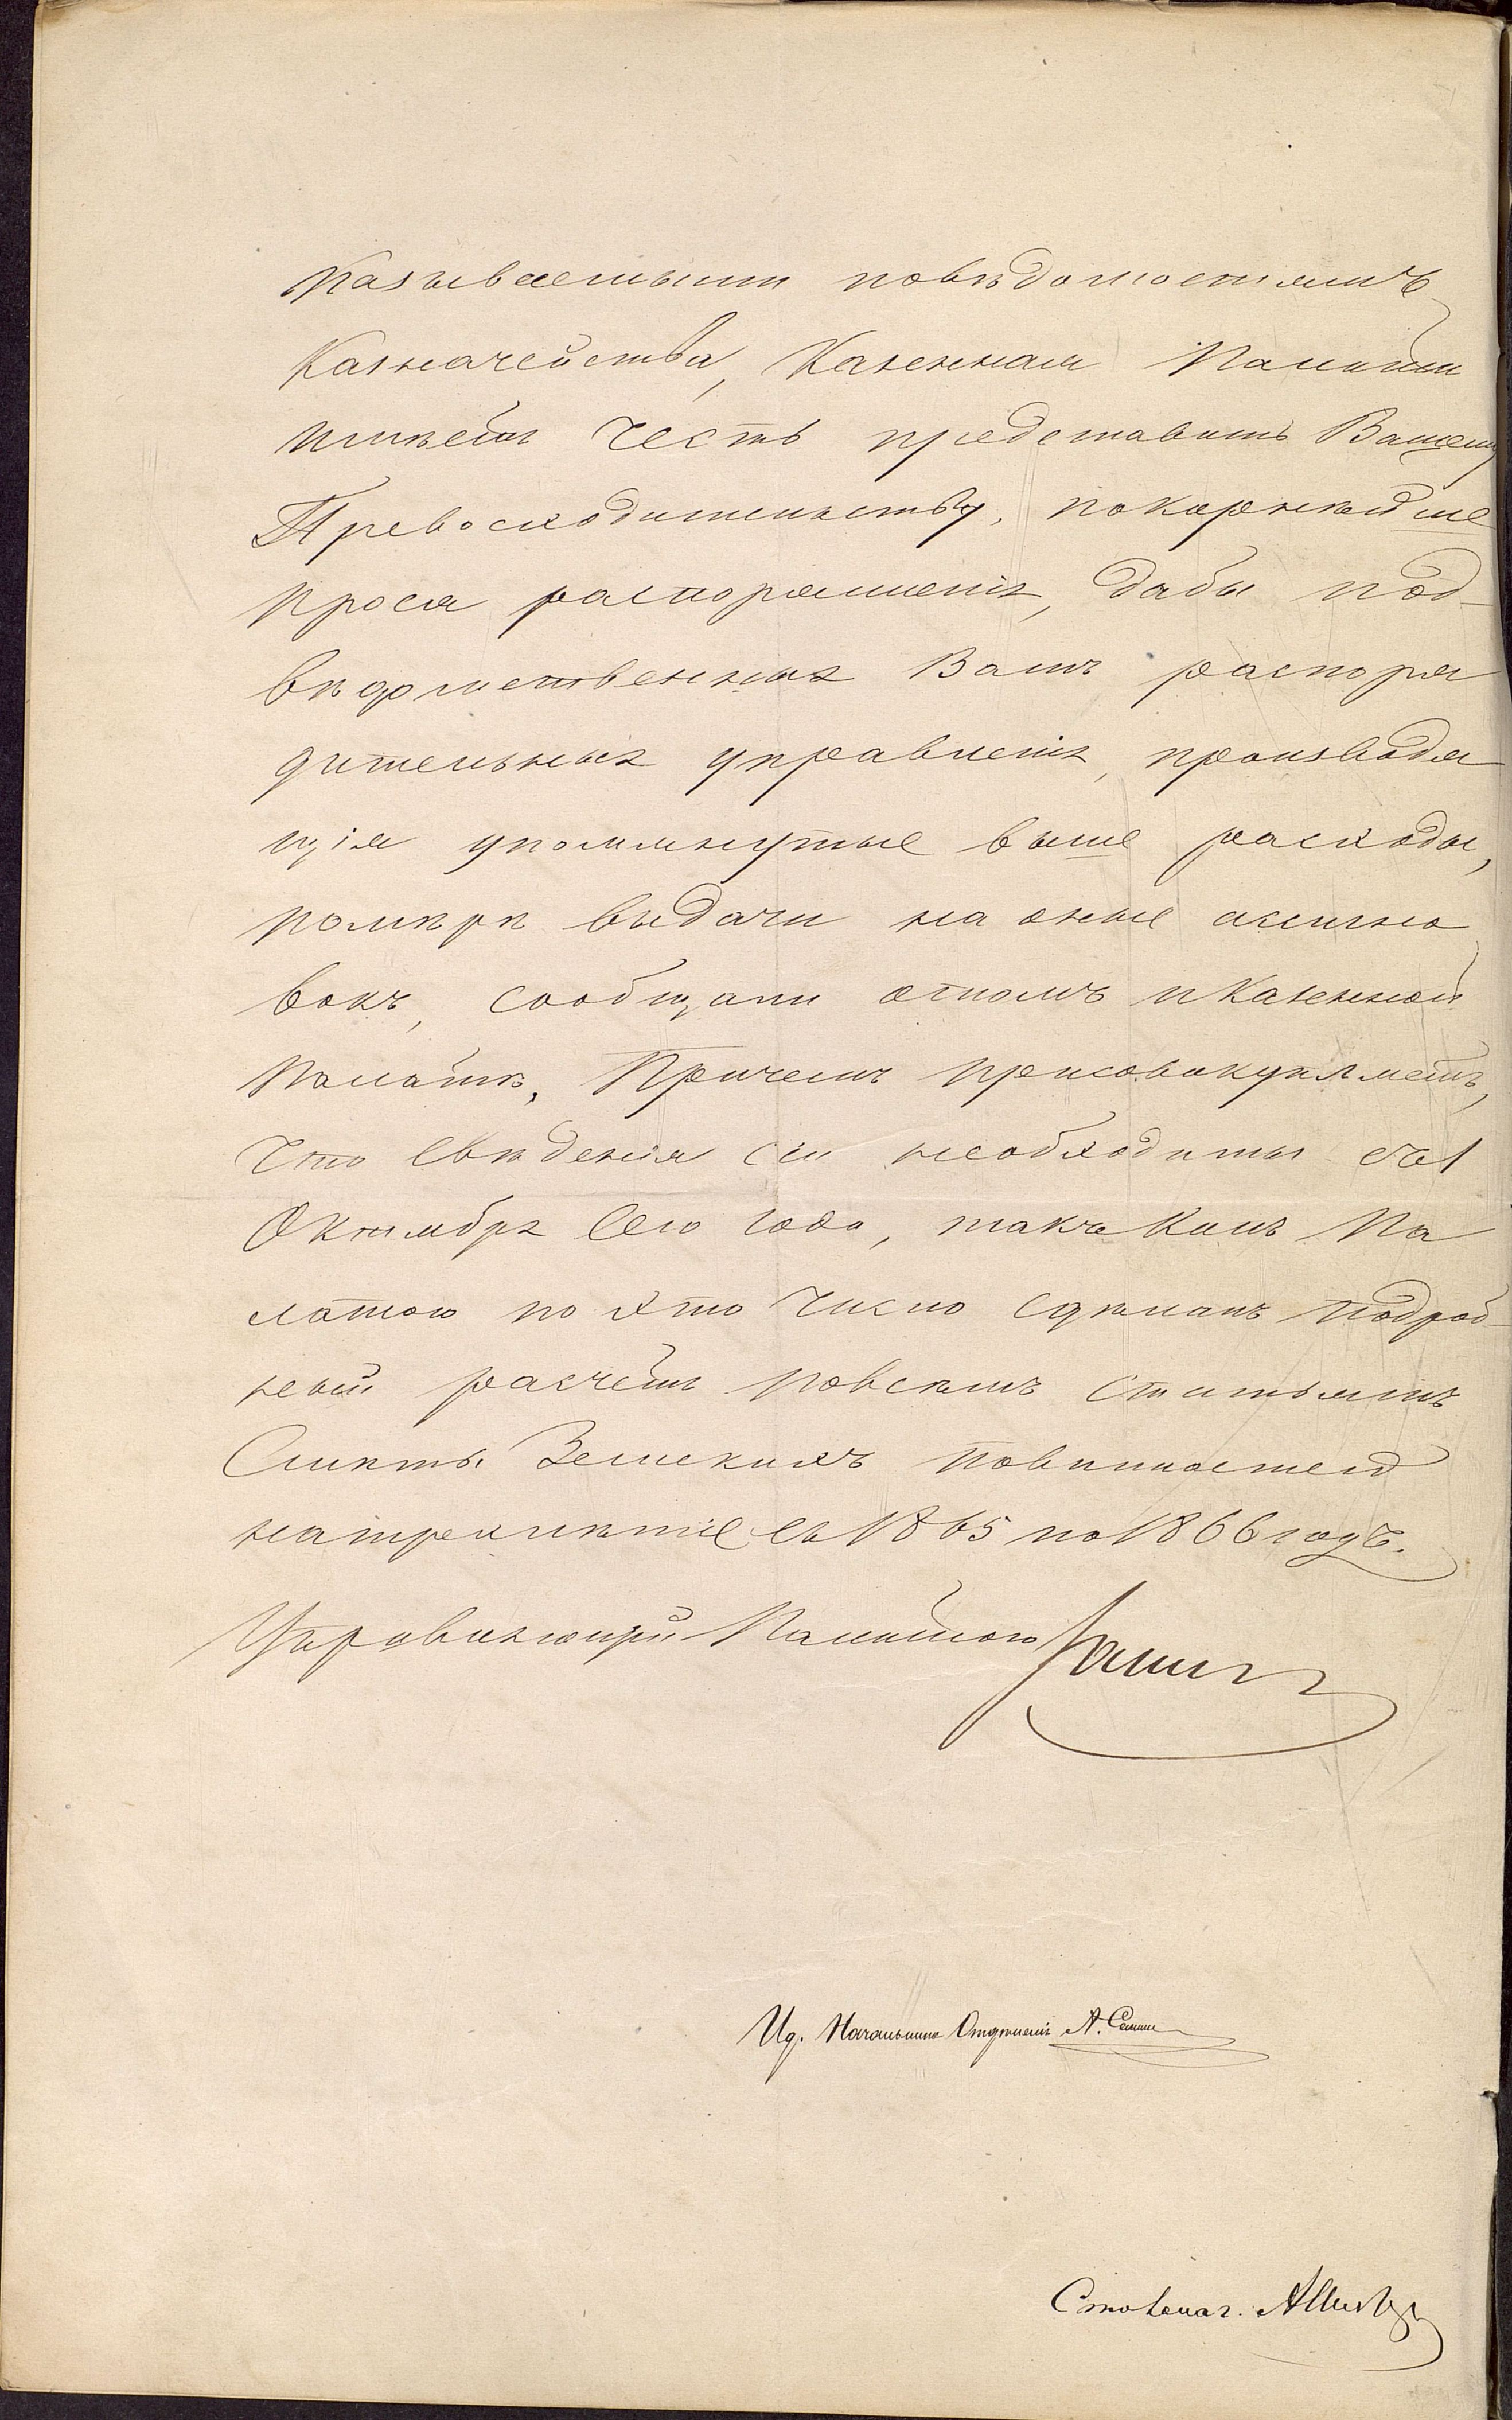 казываемыми повѣдомостямъ
Казначейства, Казенная Палата
имѣетъ честь представить Вашему
Превосходительству, покорнѣйше
прося распоряженія, дабы под-
вѣдомственныя Вамъ распоря
дительныя управленія, производя
щія упомянутые выше расходы,
помѣрѣ выдачи на оные ассигно
вокъ, сообщали отомъ и Казенной
Палатѣ, Причемъ присовокупляетъ,
Что Свѣденія сіи необходимы съ 1
Октября сего года, такъ какъ Па
латою по это число сдѣланъ подроб-
ный расчетъ повсѣмъ статьямъ
Смѣты Земскихъ повинностей
натрехлѣтіе съ 1865 по 1866 годъ.
Управляющій Палатою
Ид. Начальника Отдѣленія А.
Столонач.